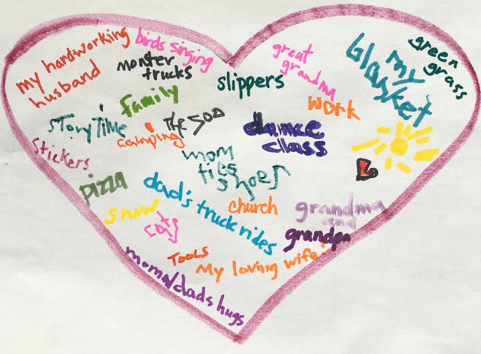 my hardworking
husband
birds singing
monster
trucks
great
grandma
slippers
my
blanket
green
grass
family
work
storytime
camping
The
dance
class
stickers
mom
ties
shoes
pizza
dad's truck rides
church
snow
cats
grandma
and
grandpa
TOOLS
My loving wife!
moms/dads hugs